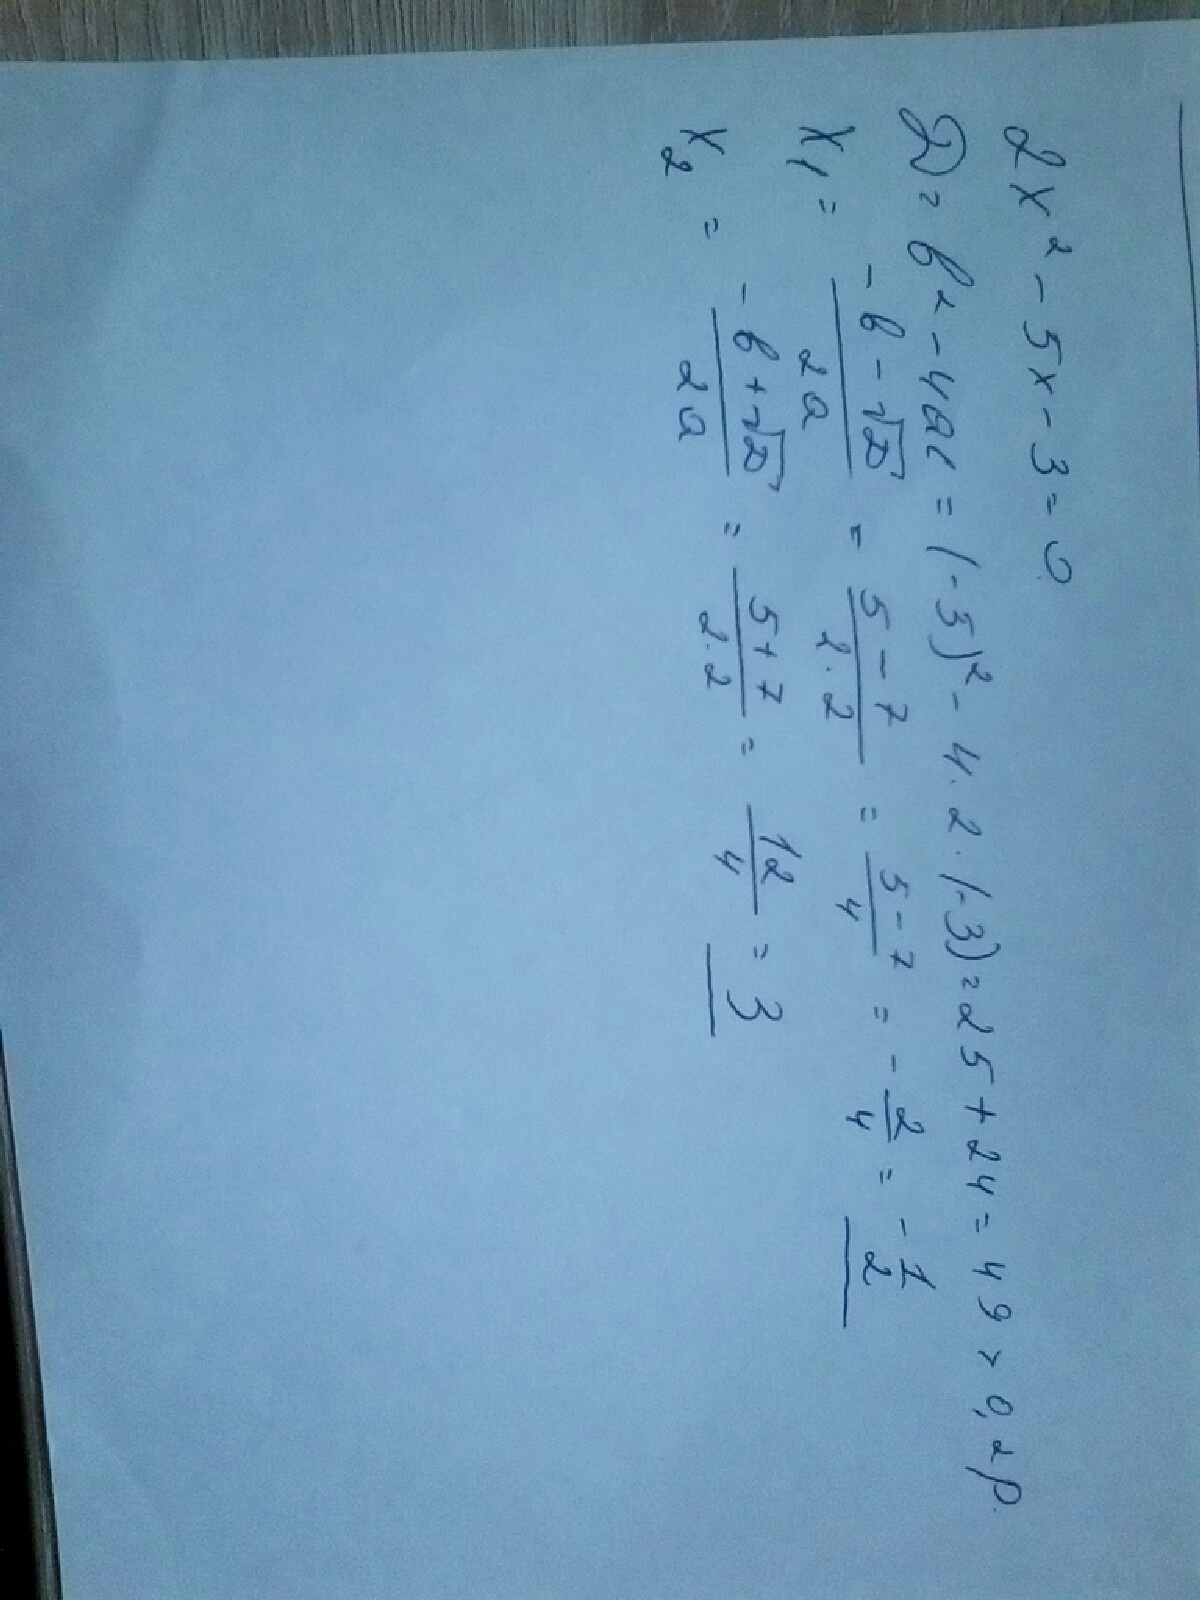 2x² - 5x - 3 = 0
D = b² - 4ac = (-5)² - 4·2·(-3) = 25 + 24 = 49 > 0, 2 р.
x₁ = (-b - √D)/(2a) = (5 - 7)/(2·2) = (5 - 7)/4 = -2/4 = -1/2
x₂ = (-b + √D)/(2a) = (5 + 7)/(2·2) = 12/4 = 3